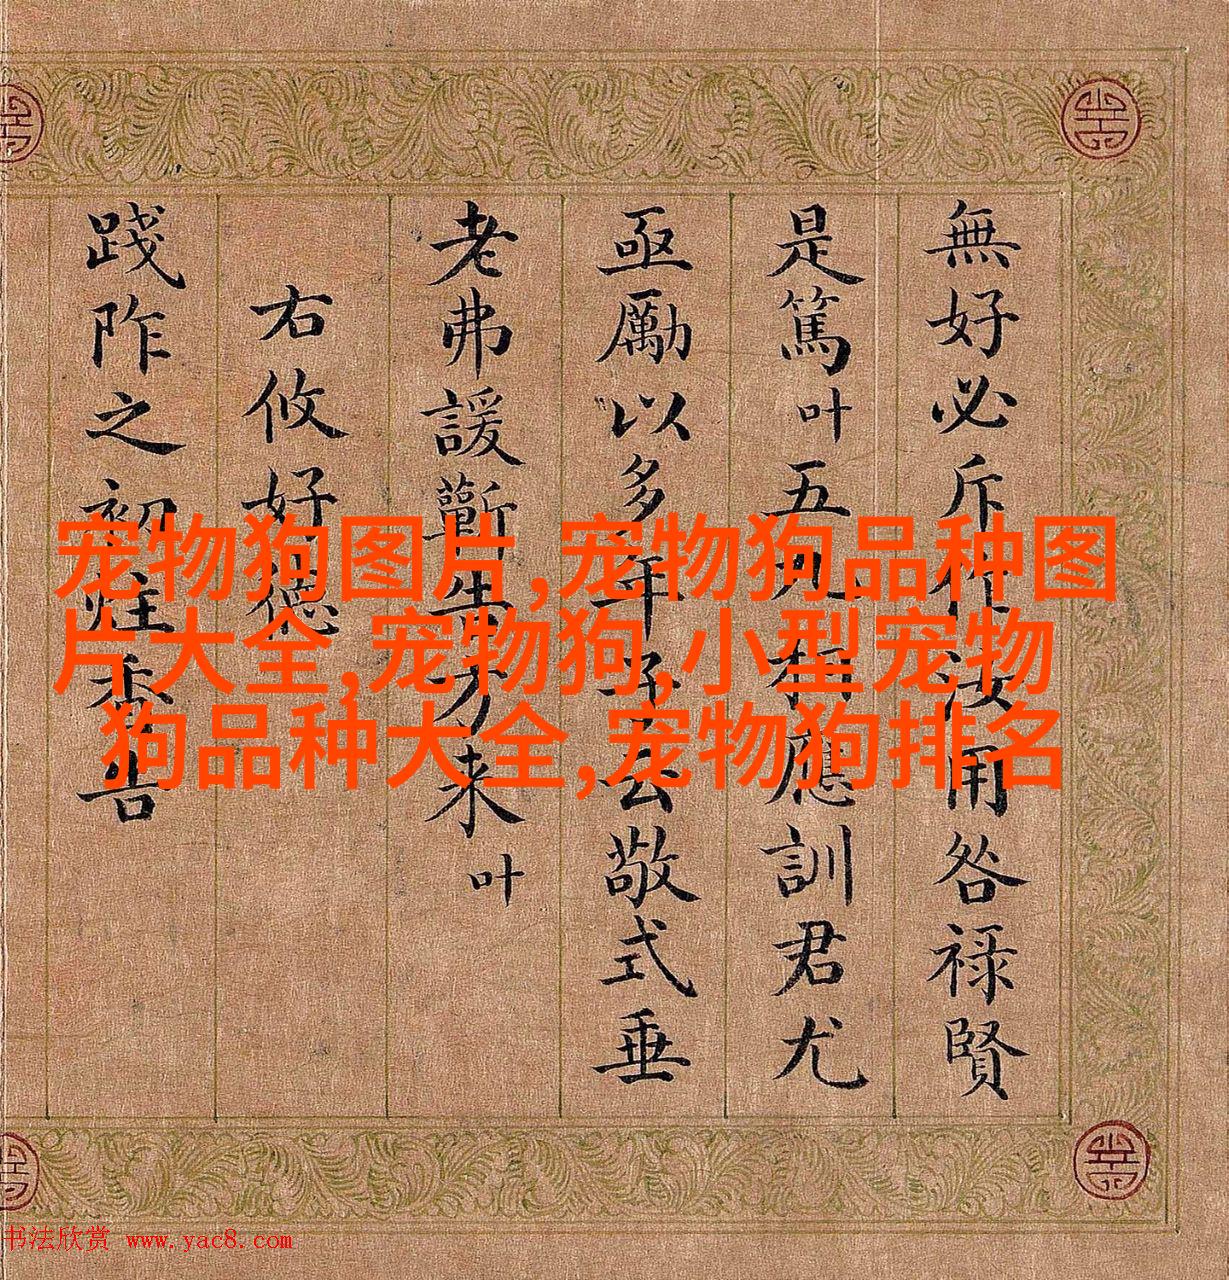 無好必斥作汝用咎祿賢
是篤叶五九相應訓君尤
亟勵以多年子公敬式垂
老弗諼蘄告方来叶
右攸好德
踐阼之初炷香告
宠物狗图片,宠物狗品种图
片大全,宠物狗,小型宠物
狗品种大全,宠物狗排名
书法欣赏 www.yac8.com